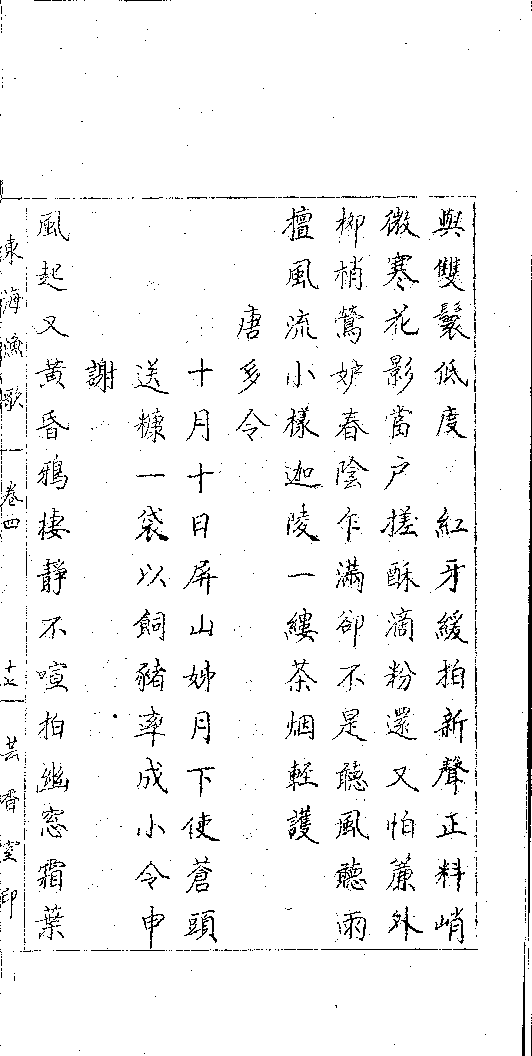 與雙鬟低度　紅牙緩拍新聲正料峭
微寒花影當戶搓酥滴粉還又怕簾外
柳梢鶯妒春陰乍滿卻不是聽風聽雨
擅風流小樣迦陵一縷茶烟輕護
唐多令
十月十日屏山姊月下使蒼頭
送糠一袋以飼豬率成小令申
謝
風起又黃昏鴉棲靜不喧拍幽窓霜葉
東海漁歌　卷四　十七　芸香室印